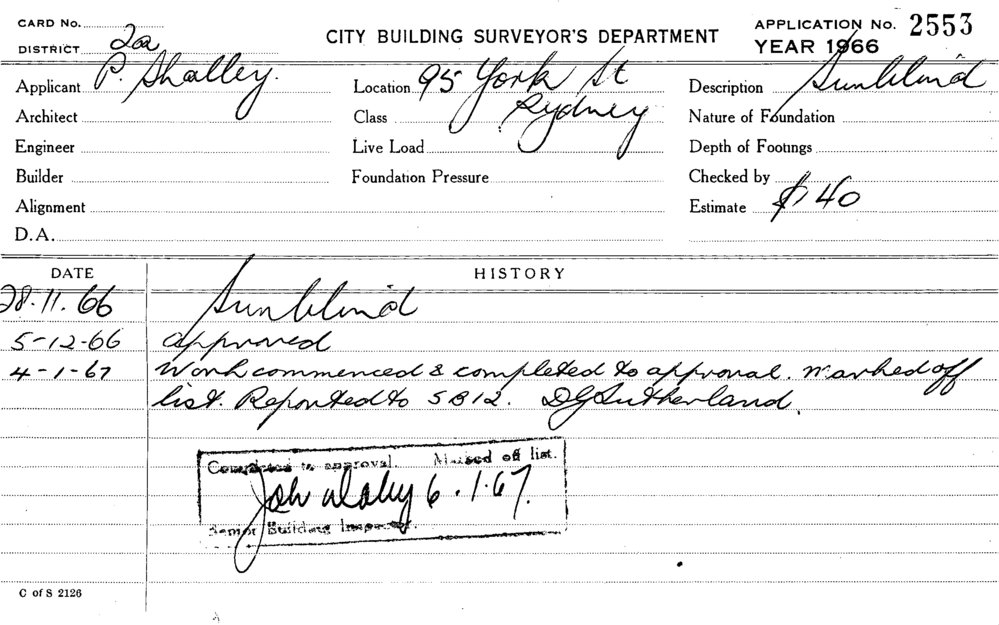 CARD No.
CITY BUILDING SURVEYOR'S DEPARTMENT
APPLICATION No. 2553
DISTRICT 2a
YEAR 1966
Applicant P. Shalley. Location 95 York St Description Sunblind
Architect Class Sydney Nature of Foundation
Engineer Live Load Depth of Footings
Builder Foundation Pressure Checked by
Alignment Estimate $140
D.A.
DATE HISTORY
28.11.66 Sunblind
5-12-66 approved
4-1-67 Work commenced & completed to approval. Marked off
list. Reported to SB12. DG Sutherland.
Completed to approval. Marked off list.
6.1.67.
Senior Building Inspector.
C of S 2126